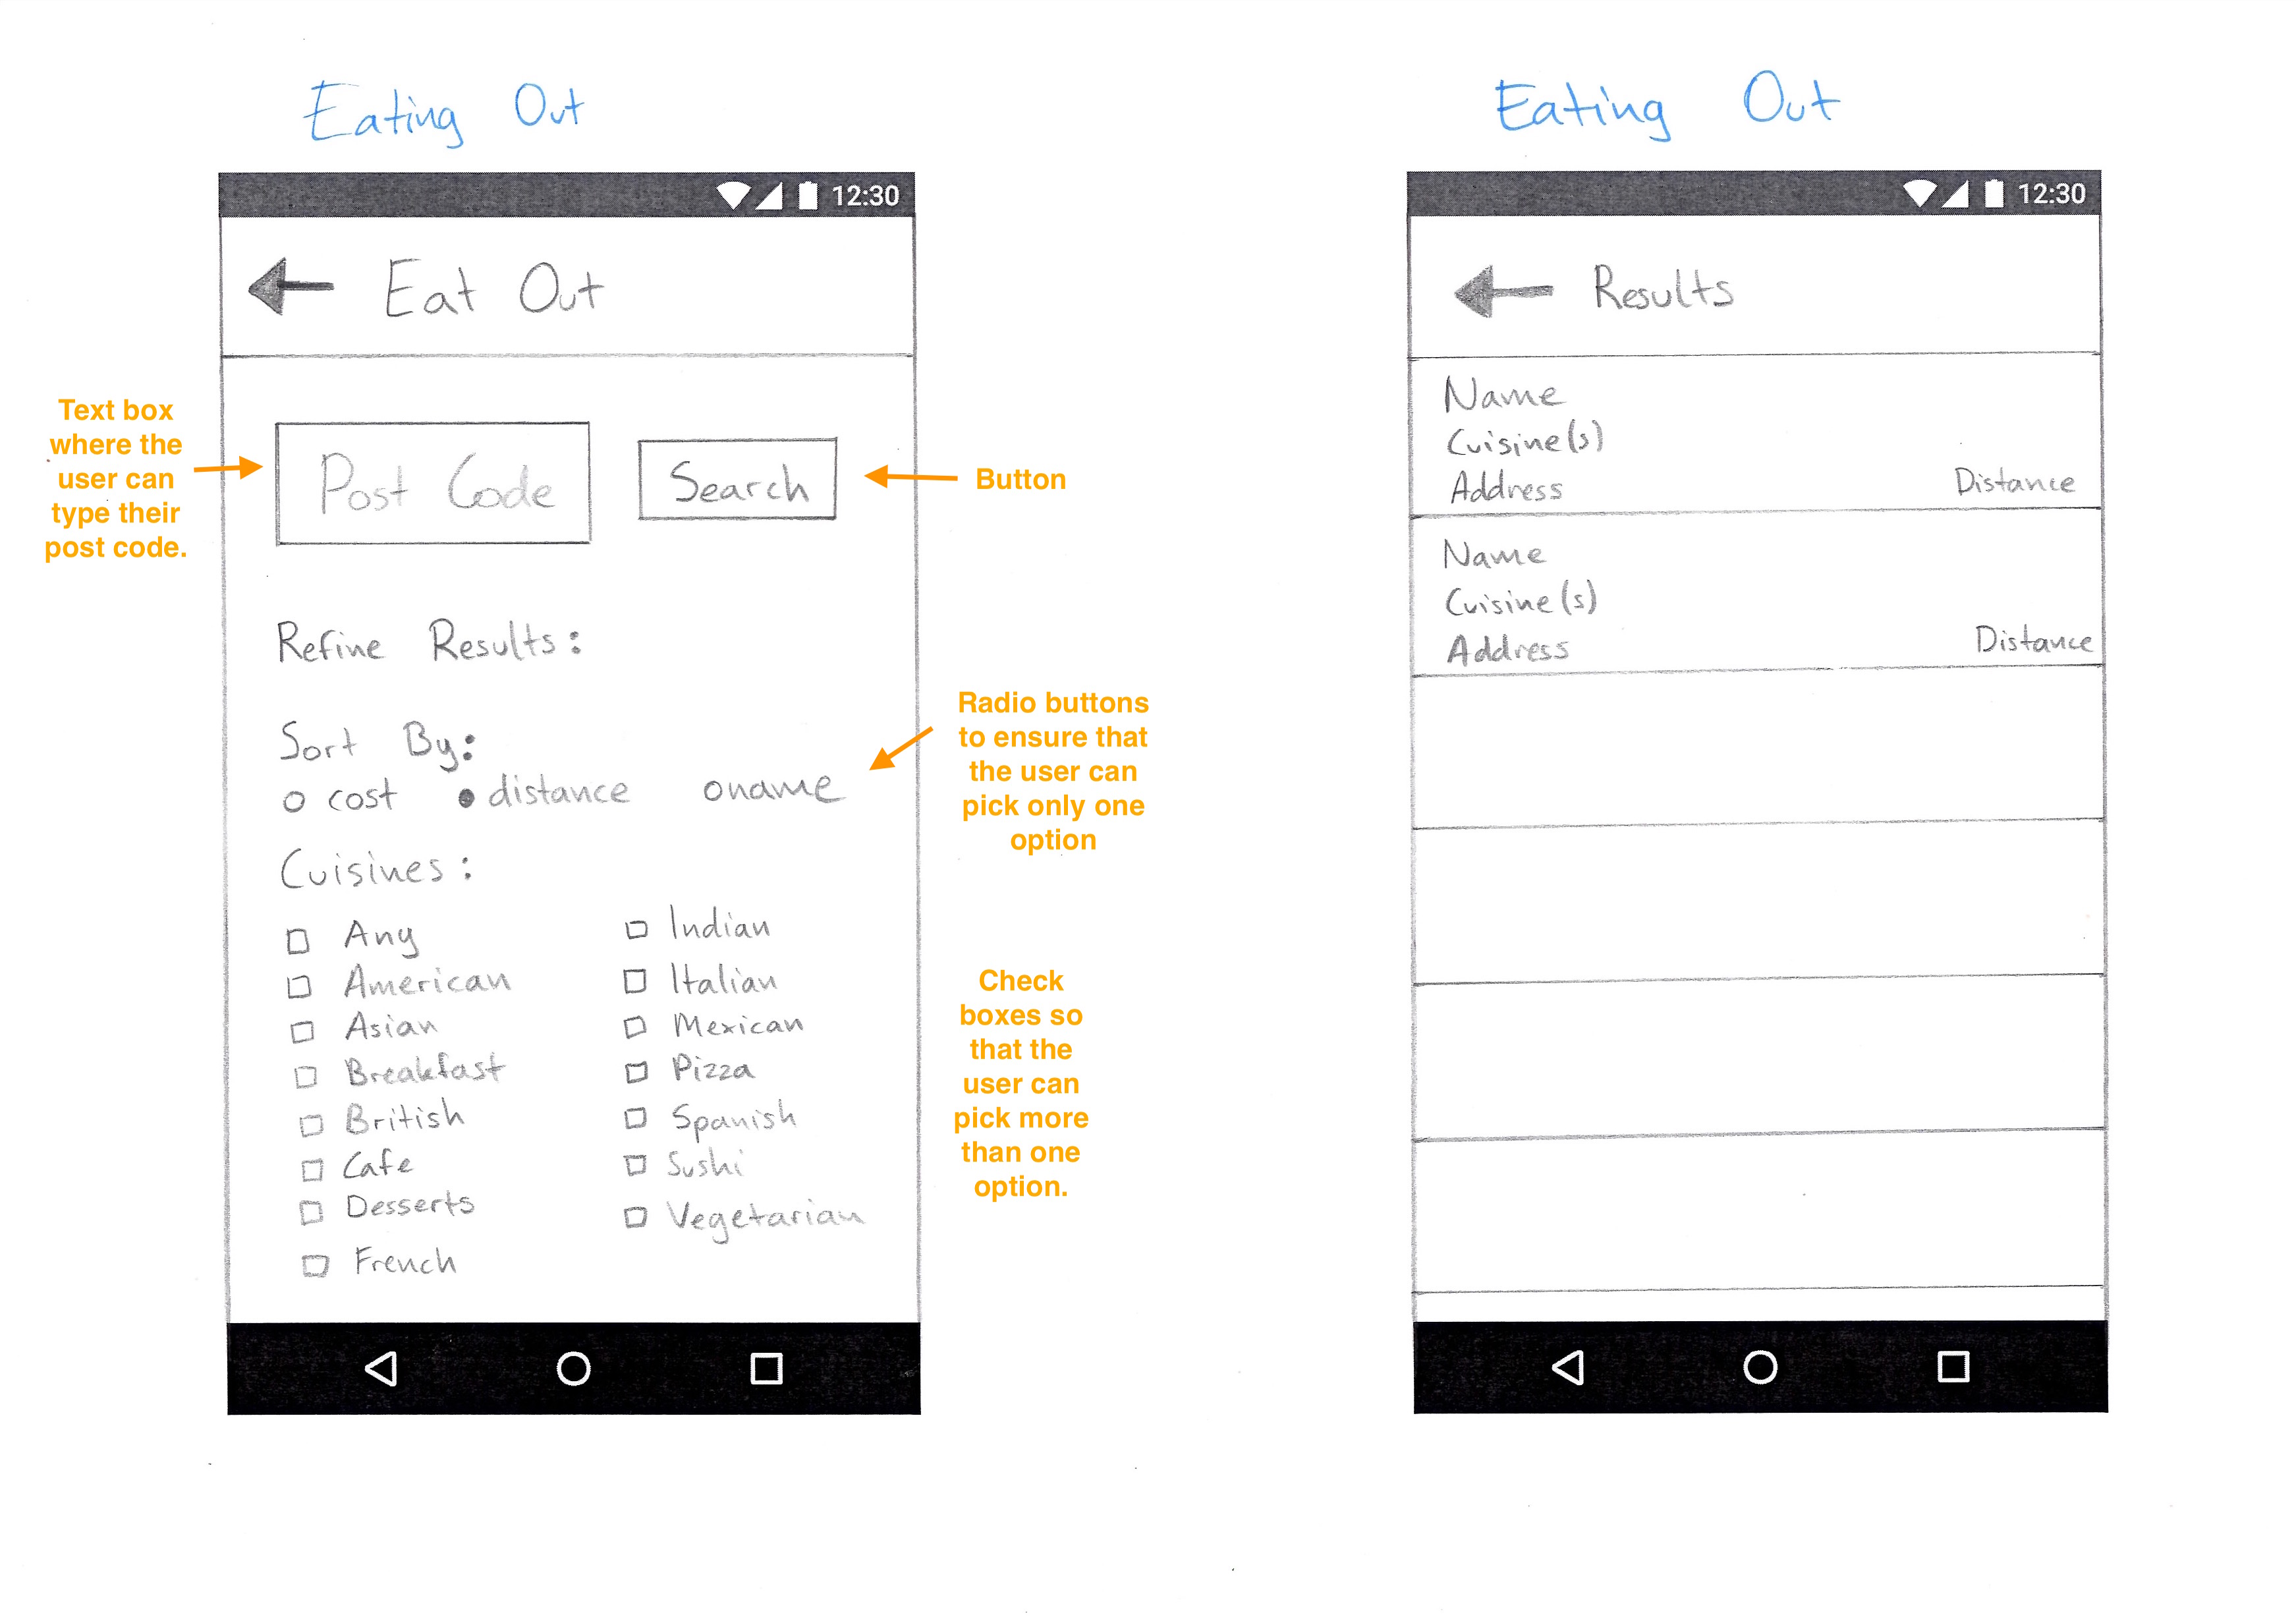 Eating Out
12:30
Eat Out
Text box
where the
user can
type their
post code.
Post Code
Search
Button
Refine Results:
Sort By:
cost distance name
Radio buttons
to ensure that
the user can
pick only one
option
Cuisines:
Any
American
Asian
Breakfast
British
Cafe
Desserts
French
Indian
Italian
Mexican
Pizza
Spanish
Sushi
Vegetarian
Check
boxes so
that the
user can
pick more
than one
option.
Eating Out
12:30
Results
Name
Cuisine(s)
Address Distance
Name
Cuisine(s)
Address Distance